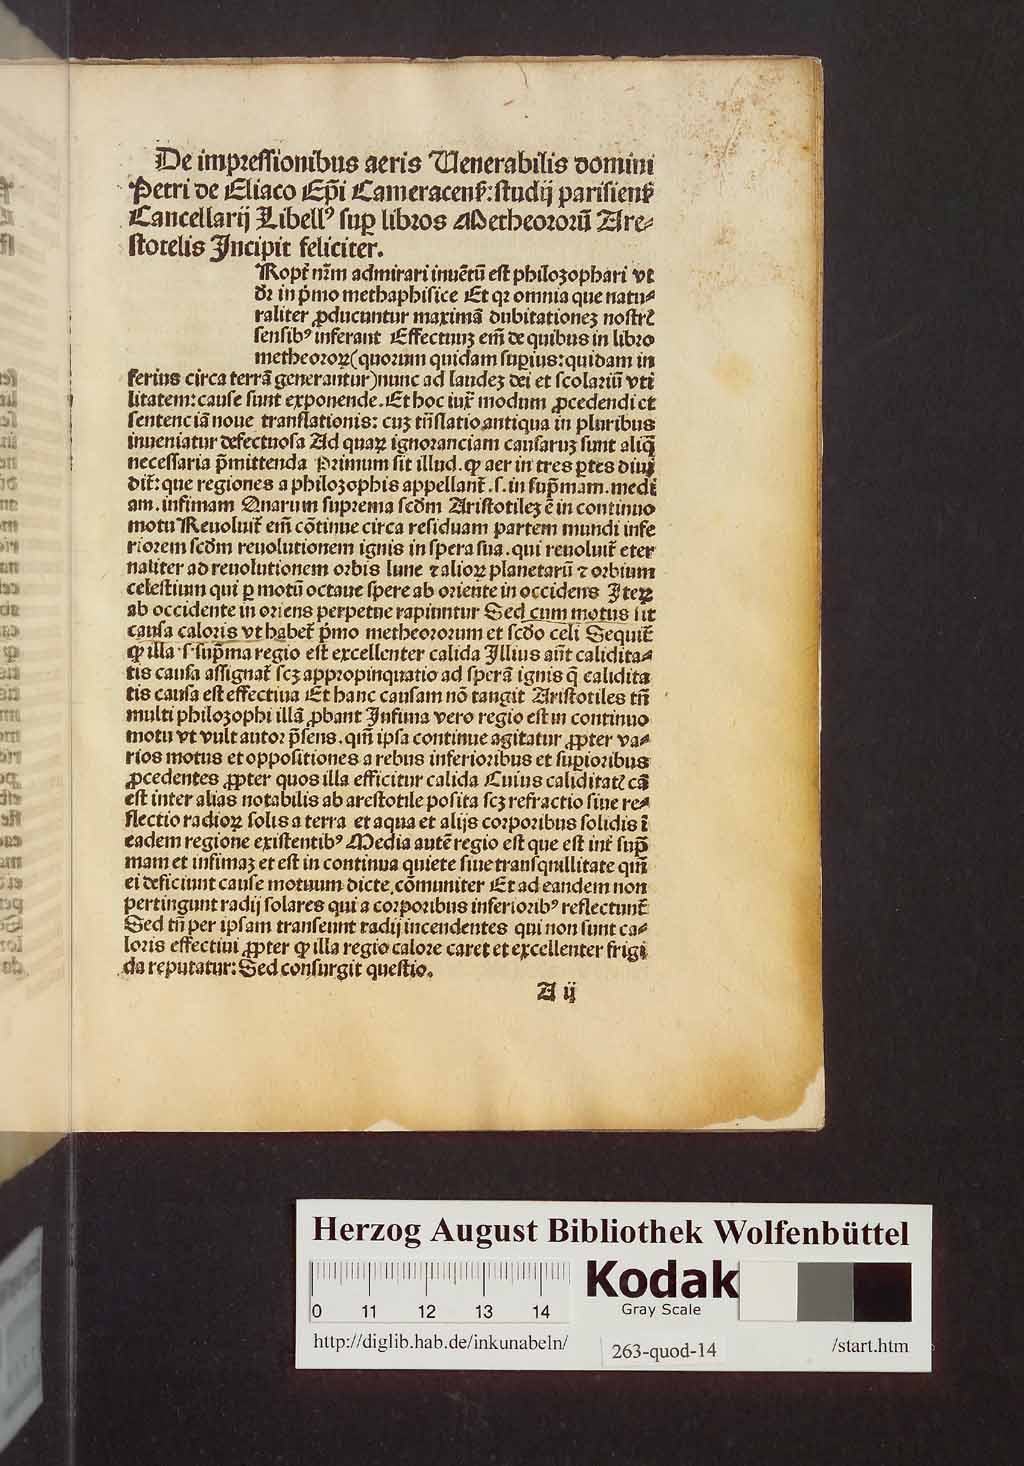 De impressionibus aeris Uenerabilis domini
Petri de Eliaco Ep̄i Cameracenꝭ: studij parisienꝭ
Cancellarij Libellꝰ suꝑ libros Metheororū Are⸗
stotelis Incipit feliciter.
Ropt̄ nr̄m admirari inuētū est philozophari vt
dr̄ in p̄mo methaphisice Et qꝛ omnia que natu⸗
raliter ꝓducuntur maximā dubitationeꝫ nostrꝭ
sensibꝰ inferant Effectuuꝫ em̄ de quibus in libro
metheoroꝝ (quorum quidam suꝑius: quidam in
ferius circa terrā generantur) nunc ad laudeꝫ dei et scolariū vti
litatem: cause sunt exponende. Et hoc iux̄ modum ꝓcedendi et
sentenciā noue translationis: cuꝫ trn̄slatio antiqua in pluribus
inueniatur defectuosa Ad quaꝝ ignoranciam causaruꝫ sunt aliq̄
necessaria p̄mittenda Primum sit illud. ꝙ aer in tres ꝑtes diui
dit̄: que regiones a philozophis appellant̄ .s. in sup̄mam. medi
am. infimam Quarum suprema scd̄m Aristotileꝫ ē in continuo
motu Reuoluit̄ em̄ cōtinue circa residuam partem mundi infe
riorem scd̄m reuolutionem ignis in spera sua. qui reuoluit̄ eter
naliter ad reuolutionem orbis lune ⁊ alioꝝ planetarū ⁊ orbium
celestium qui ꝑ motū octaue spere ab oriente in occidens Iteꝝ
ab occidente in oriens perpetue rapiuntur Sed cum motus sit
causa caloris vt habet̄ p̄mo metheororum et scd̄o celi Sequit̄
ꝙ illa .s. sup̄ma regio est excellenter calida Illius aūt calidita⸗
tis causa assignat̄ scꝫ appropinquatio ad sperā ignis q̄ calidita
tis causa est effectiua Et hanc causam nō tangit Aristotiles tn̄
multi philozophi illā ꝓbant Infima vero regio est in continuo
motu vt vult autor p̄sens. qm̄ ipsa continue agitatur ꝓpter va⸗
rios motus et oppositiones a rebus inferioribus et suꝑioribus
ꝓcedentes ꝓpter quos illa efficitur calida Cuius caliditatꝭ cā
est inter alias notabilis ab arestotile posita scꝫ refractio siue re⸗
flectio radioꝝ solis a terra et aqua et alijs corporibus solidis ī
eadem regione existentibꝰ Media autē regio est que est int̄ sup̄
mam et infimaꝫ et est in continua quiete siue transquillitate qm̄
ei deficiunt cause motuum dicte cōmuniter Et ad eandem non
pertingunt radij solares qui a corporibus inferioribꝰ reflectunt̄
Sed tn̄ per ipsam transeunt radij incendentes qui non sunt ca⸗
loris effectiui ꝓpter ꝙ illa regio calore caret et excellenter frigi
da reputatur: Sed consurgit questio.
A ij
Herzog August Bibliothek Wolfenbüttel
Kodak
Gray Scale
0 11 12 13 14
http://diglib.hab.de/inkunabeln/
263-quod-14
/start.htm